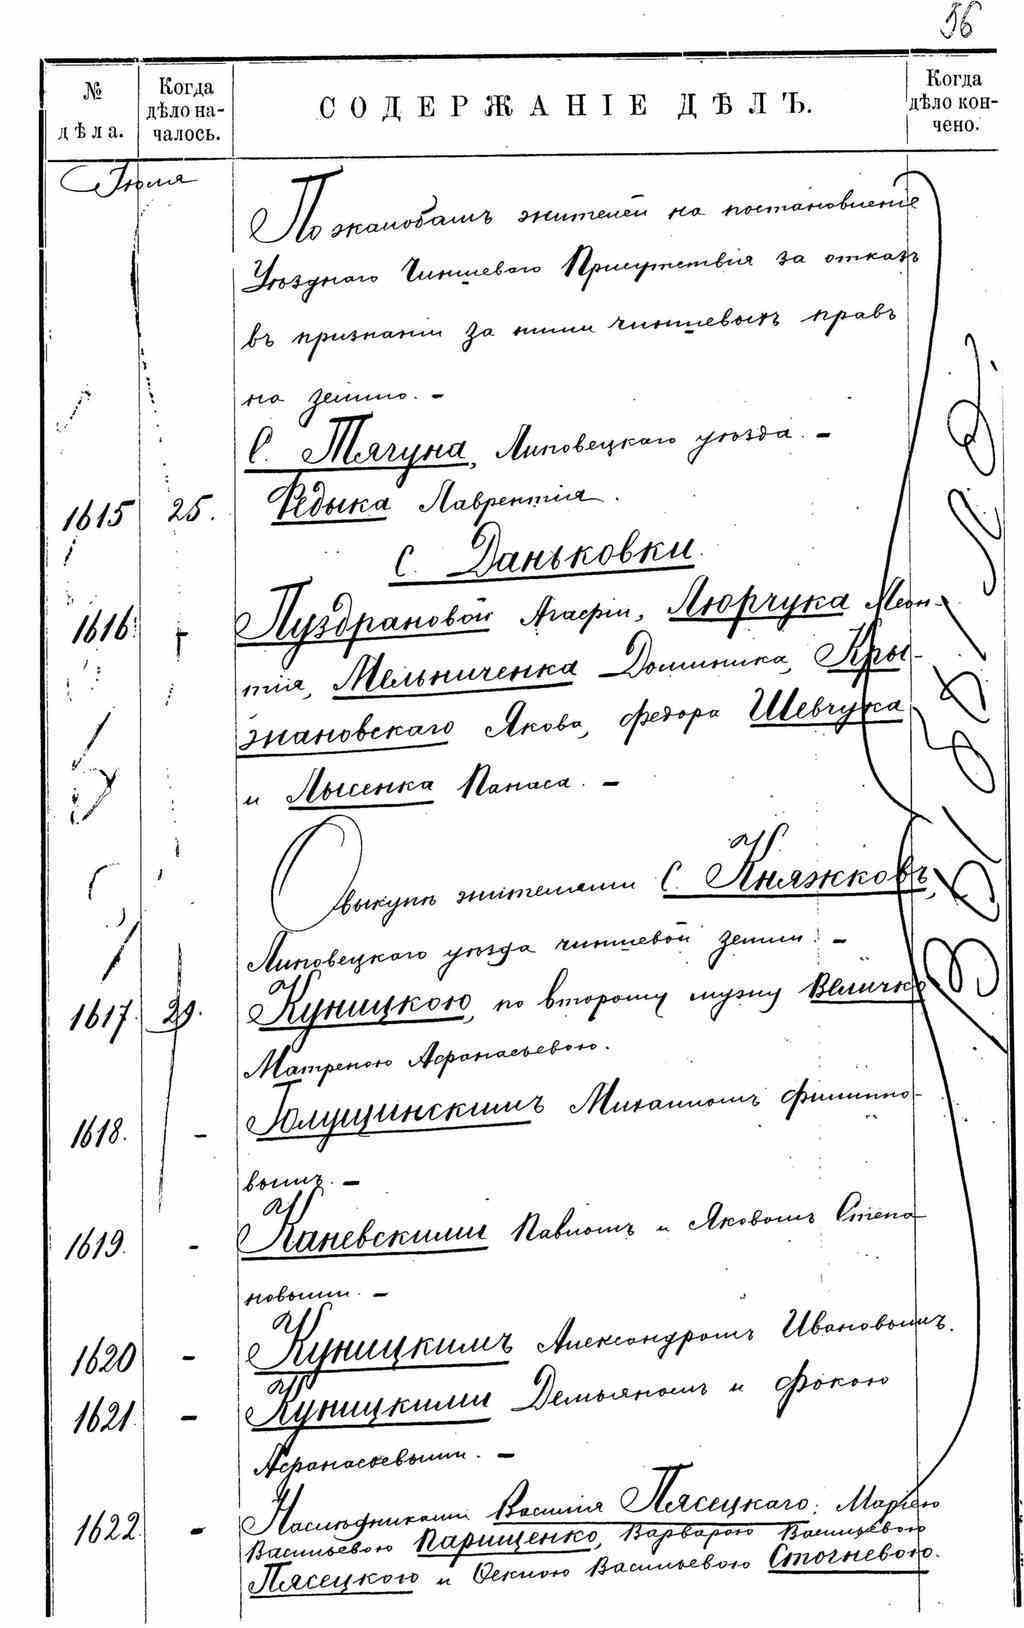 56
№ дѣла.
Когда дѣло началось.
СОДЕРЖАНІЕ ДѢЛЪ.
Когда дѣло кончено.
Іюля
По жалобамъ жителей на постановленіе
Уѣзднаго Чиншеваго Присутствія за отказъ
въ признаніи за ними чиншевыхъ правъ
на землю. –
С. Тягуна, Липовецкаго уѣзда. –
1615 25. Федыка Лаврентія.
С. Даньковки.
1616 – Пуздрановой Агафіи, Люрчука Леон-
тія, Мельниченка Доминика, Кры-
жановскаго Якова, Федора Шевчука
и Лысенка Панаса. –
О выкупѣ жителями С. Княжковъ,
Липовецкаго уѣзда чиншевой земли: –
1617 29. Куницкою, по второму мужу Величко
Матреною Афанасьевою.
1618. – Голущинскимъ Михаиломъ Филиппо-
вымъ. –
1619. – Каневскими Павломъ и Яковомъ Степа
новыми. –
1620 – Куницкимъ Александромъ Ивановымъ.
1621 – Куницкими Демьяномъ и Фокою
Афанасьевыми. –
1622 – Наслѣдниками Василія Пясецкаго: Маріею
Васильевою Парищенко, Варварою Васильевою
Пясецкою и Феклою Васильевою Сточневою.